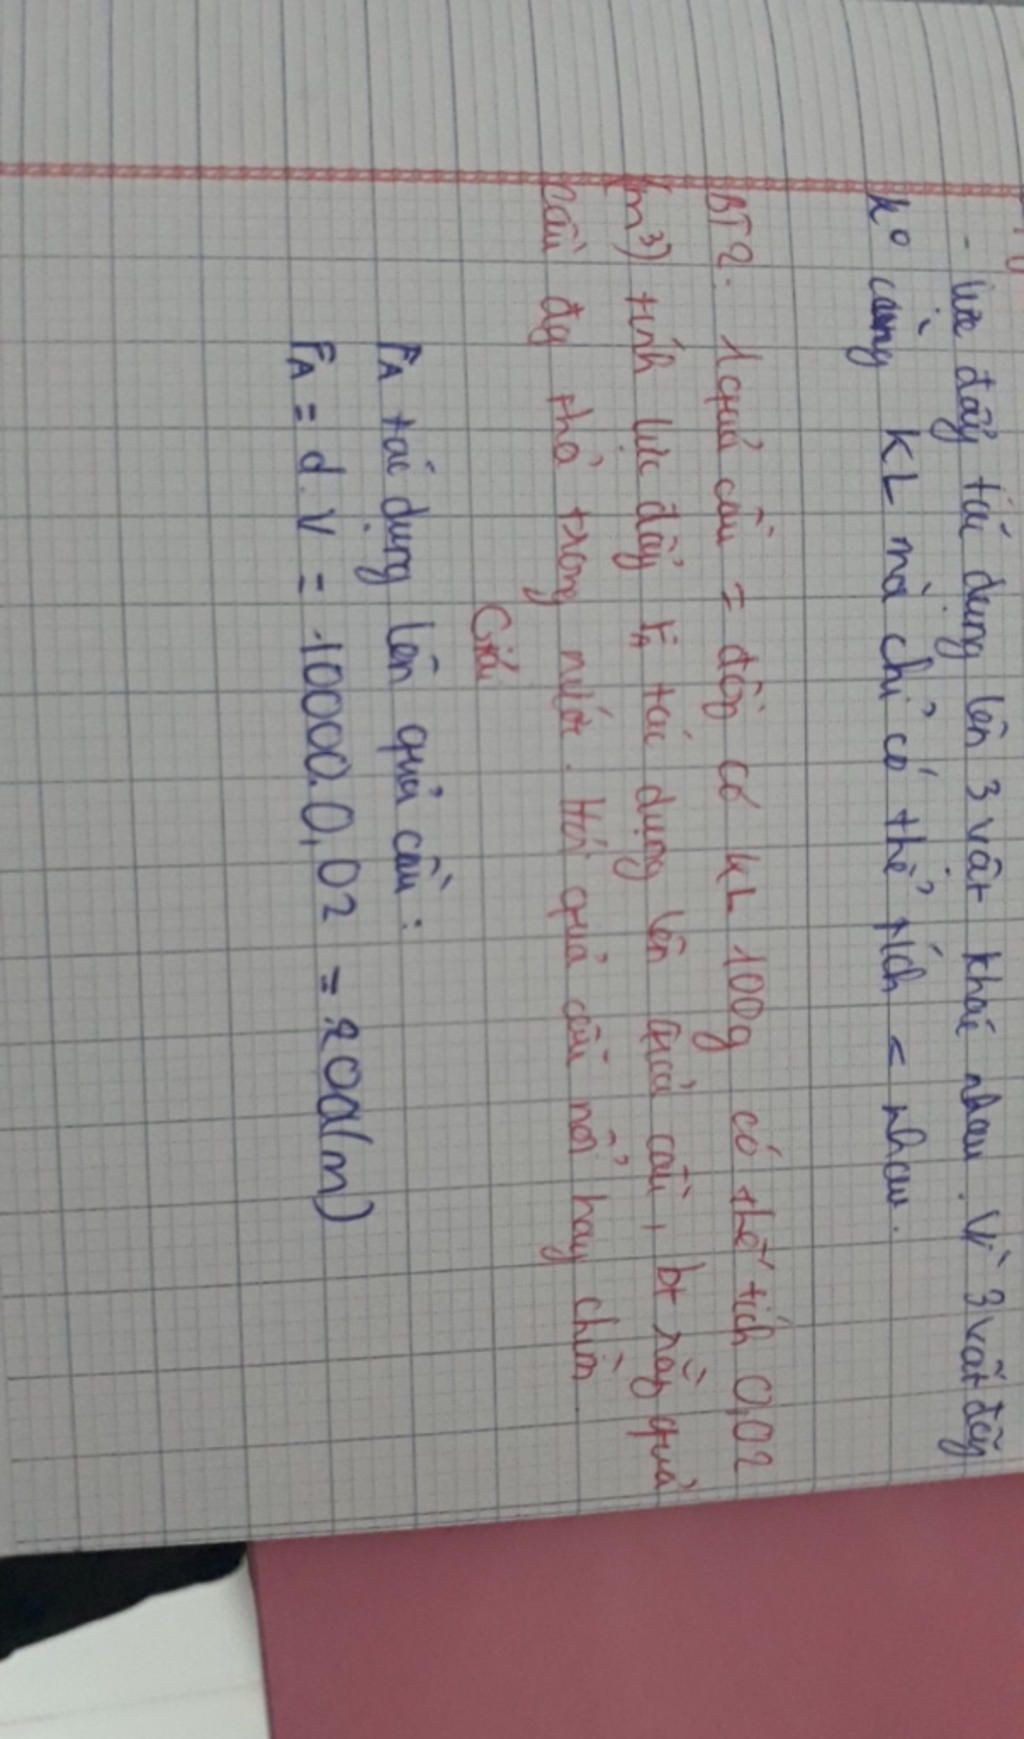 - lực đẩy tác dụng lên 3 vật khác nhau. Vì 3 vật đấy
k° cùng KL mà chỉ có thể tích < nhau.
BT2. 1 quả cầu = đồng có KL 100g có thể tích 0,02
(m³) tính lực đẩy FA tác dụng lên quả cầu, bt rằng quả
cầu đg thả trong nước. Hỏi quả cầu nổi hay chìm
Giải
FA tác dụng lên quả cầu:
FA = d.V = 10000.0,02 = 200(m)